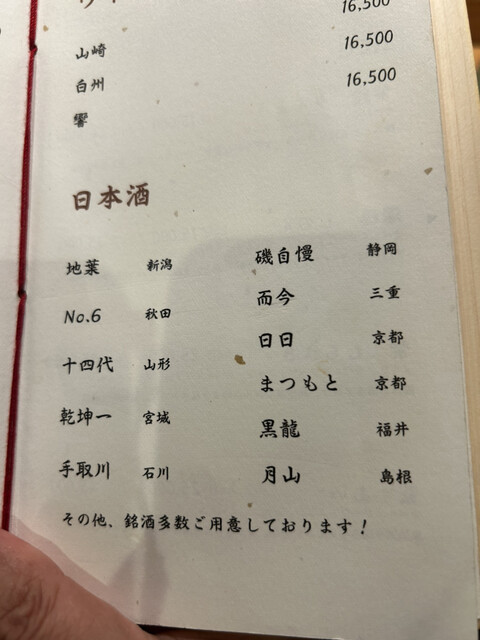 16,500
山崎 16,500
白州 16,500
響
日本酒
地葉 新潟
No.6 秋田
十四代 山形
乾坤一 宮城
手取川 石川
磯自慢 静岡
而今 三重
日日 京都
まつもと 京都
黒龍 福井
月山 島根
その他、銘酒多数ご用意しております！